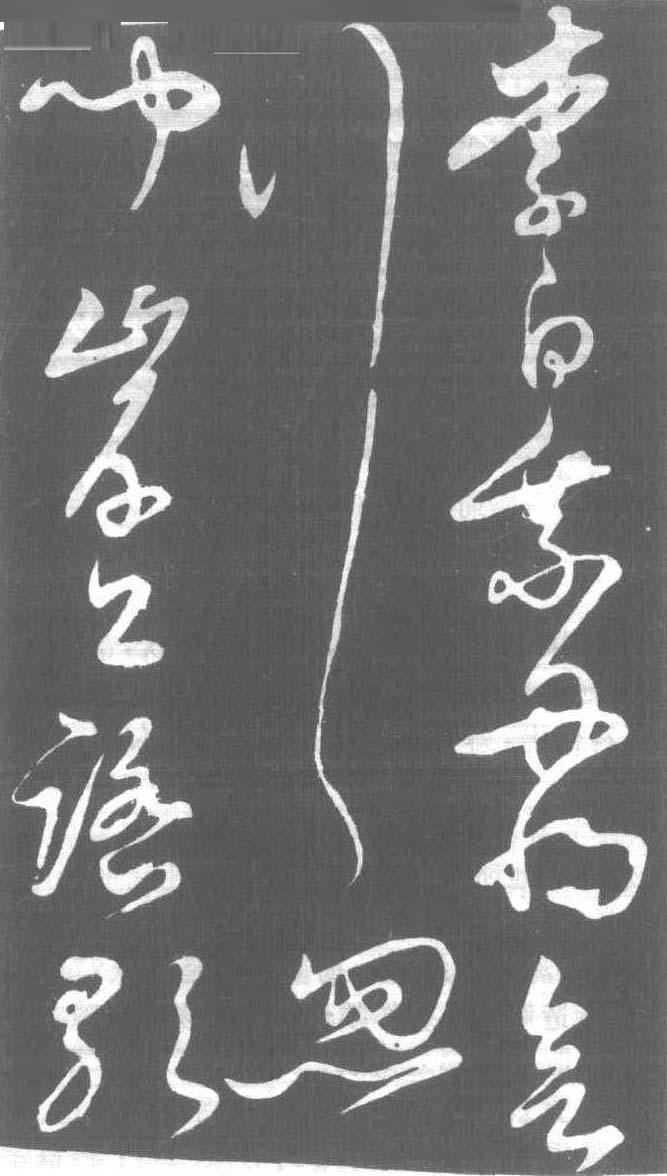 李白乘舟將欲
行忽
聞岸上踏歌